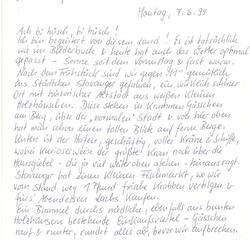 Montag, 7.6.99
Ach bi hüsch, bi hüsch!
Ich bin begeistert von diesem Land! Es ist tatsächlich
wie im Bilderbuch & heute hat auch das Wetter optimal
gepasst - Sonne seit dem Vormittag & fast warm.
Nach dem Frühstück sind wir gegen 11ʰ gemütlich
ins Städtchen Stavanger gefahren, ein wirklich schöner
Ort mit historischer Altstadt aus weißen kleinen
Holzhäuschen. Diese stehen in krummen Gässchen
am Berg, über der "normalen" Stadt & von hier oben
hat man schon einen tollen Blick auf ferne Berge.
Unten ist der Hafen, geschäftig, voller Kräne & Schiffe,
wobei kurioserweise der größte Kran noch über die
Hausgiebel - die ja viel weiter oben stehen - hinausragt.
Stavanger hat einen kleinen Fischmarkt, wo wir
vom Stand weg 1 Pfund frische Krabben vertilgen &
fürs Abendessen Lachs kaufen.
Ein Bummel durchs niedliche, ebenfalls aus bunten
Holzhäusern bestehende Einkaufsviertel - Gässchen
rauf & runter, rundet alles ab, bevor wir aufbrechen.